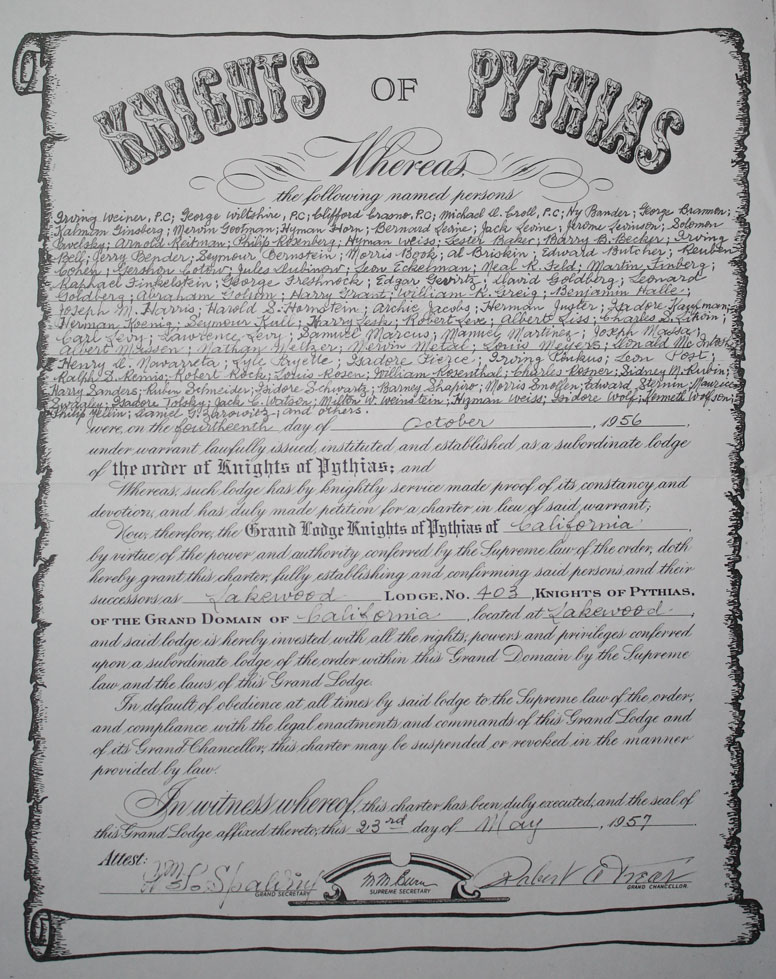 KNIGHTS OF PYTHIAS
Whereas,
the following named persons
Irving Weiner, P.C; George Wiltshire, P.C; Clifford Crasno, P.C; Michael D. Croll, P.C; Hy Bander; George Brannen;
Kalman Ginsberg; Mervin Gootman; Hyman Horn; Bernard Levine; Jack Levine; Jerome Levinson; Solomon
Pavelsky; Arnold Reitman; Philip Rosenberg; Hyman Weiss; Lester Baker; Barry B. Becker; Irving
Bell; Jerry Bender; Seymour Bernstein; Morris Book; Al Briskin; Edward Butcher; Reuben
Cohen; Gershon Lotow; Jules Dubinow; Leon Eckelman; Neal R. Feld; Martin Finberg;
Raphael Finkelstein; George Freshnock; Edgar Gevirtz; David Goldberg; Leonard
Goldberg; Abraham Golum; Harry Grant; William R. Greig; Benjamin Halle;
Joseph M. Harris; Harold S. Hornstein; Archie Jacobs; Herman Juster; Isadore Kaufman;
Herman Koenig; Seymour Kuli; Harry Lesk; Robert Levi; Albert Liss; Charles S. Likoin;
Carl Levy; Lawrence Levy; Samuel Marcus; Manuel Martinez; Joseph Massa;
Albert Meissen; Nathan Meltzer; Mervin Metal; Louis Meyers; Donald McIntosh
Henry D. Navarreta; Lyle Payette; Isadore Pierce; Irving Pinkus; Leon Post;
Ralph S. Remis; Robert Rock; Louis Rosen; William Rosenthal; Charles Rosner; Sidney M. Rubin;
Harry Sanders; Ruben Schneider; Isidore Schwartz; Barney Shapiro; Morris Smollen; Edward Sternin; Maurice
Swagley; Isadore Totsky; Jack C. Watsen; Milton W. Weinstein; Hyman Weiss; Isidore Wolf; Kenneth Wolfson;
Philip Yellin; Daniel G. Zarowitz; and others.
were, on the fourteenth day of October, 1956,
under warrant lawfully issued, instituted and established as a subordinate lodge
of the order of Knights of Pythias; and
Whereas, such lodge has by knightly service made proof of its constancy and
devotion, and has duly made petition for a charter in lieu of said warrant;
Now, therefore, the Grand Lodge Knights of Pythias of California,
by virtue of the power and authority conferred by the Supreme law of the order, doth
hereby grant this charter, fully establishing and confirming said persons, and their
successors as Lakewood LODGE, NO. 403, KNIGHTS OF PYTHIAS,
OF THE GRAND DOMAIN OF California, located at Lakewood,
and said lodge is hereby invested with all the rights, powers and privileges conferred
upon a subordinate lodge of the order within this Grand Domain by the Supreme
law and the laws of this Grand Lodge.
In default of obedience at all times by said lodge to the Supreme law of the order,
and compliance with the legal enactments and commands of this Grand Lodge and
of its Grand Chancellor, this charter may be suspended or revoked in the manner
provided by law.
In witness whereof, this charter has been duly executed, and the seal of
this Grand Lodge affixed thereto, this 23rd day of May, 1957
Attest:
GRAND SECRETARY
SUPREME SECRETARY
Robert
GRAND CHANCELLOR